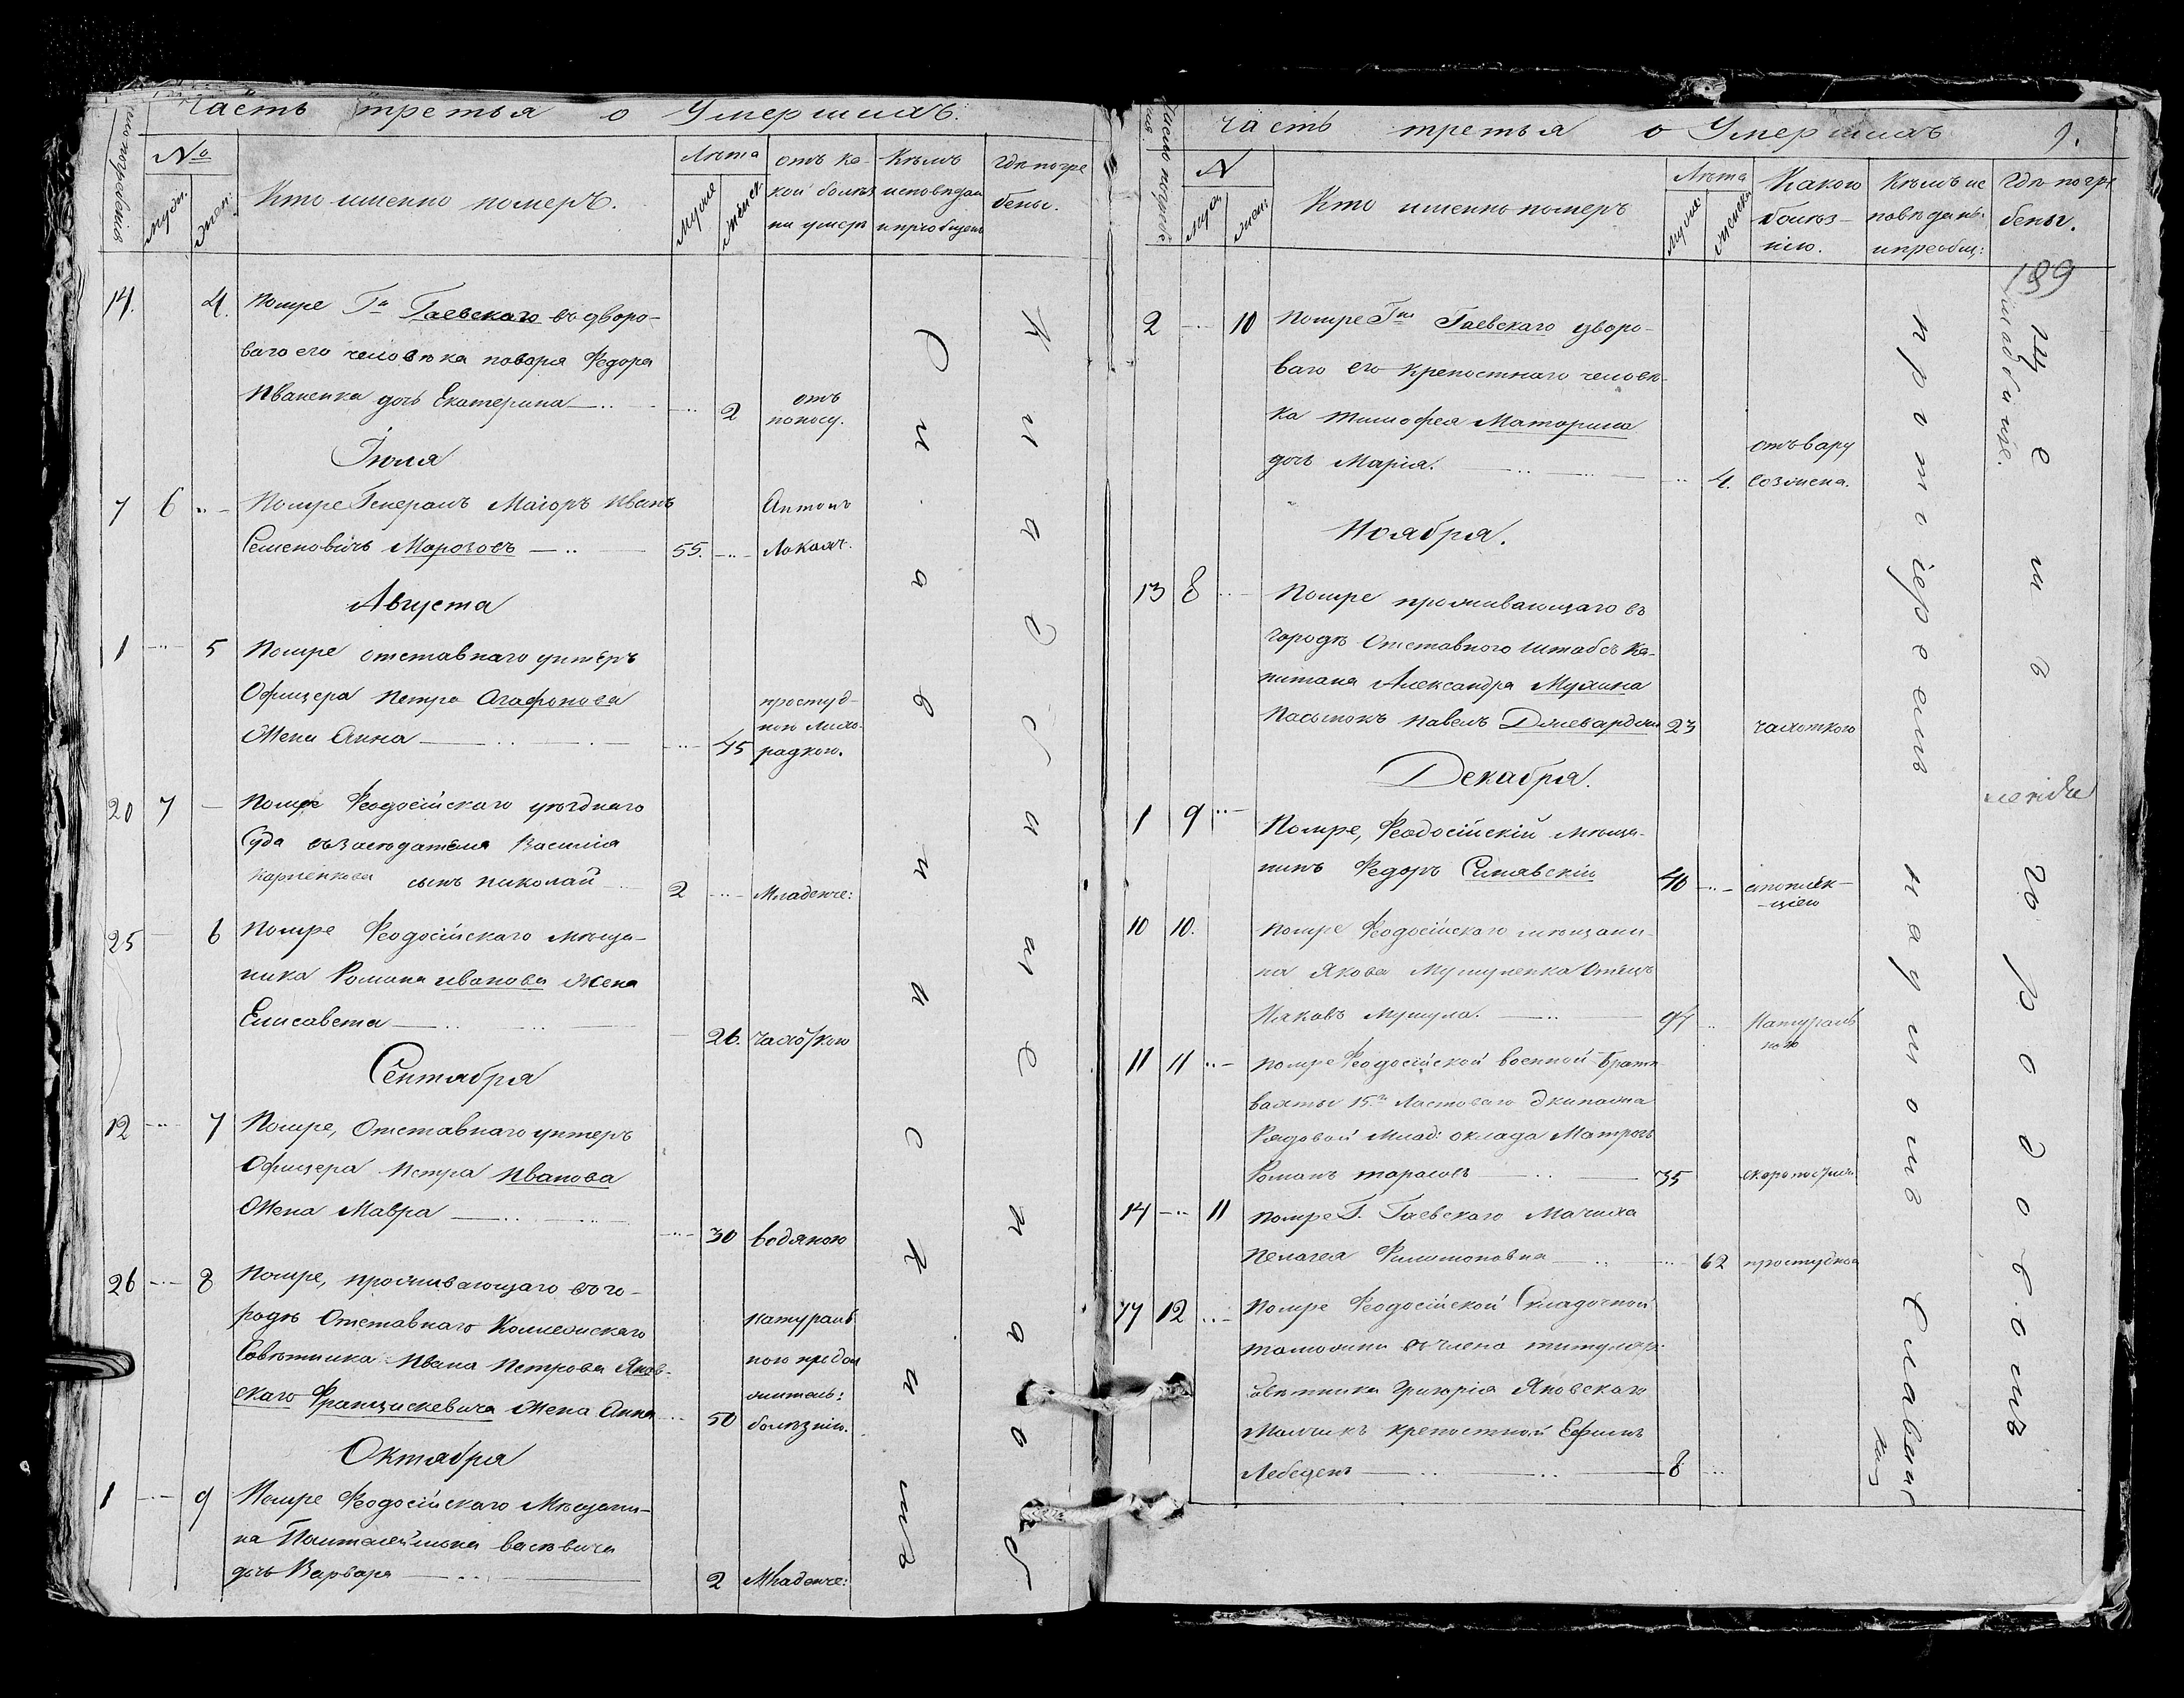 Часть третья о Умершихъ.
число погребенія
№
мужи.
жен.
Кто именно померъ.
Лѣта
Мужес
Женск.
отъ ка-
кой болѣз
ни умеръ
Кѣмъ
исповѣдан
и пріобщенъ
гдѣ погре
бены.
14. 4. Помре Гна Гаевскаго въ дворо-
ваго его человѣка повара Федора
Иваненка дочь Екатерина 2 отъ
поносу.
Іюля
7 6 Помре Генералъ Маіоръ Иванъ
Семеновичь Морозовъ 55. Антонъ
Августа
1 5 Помре отставнаго унтеръ
Офицера Петра Агафонова
Жена Анна 45 простуд-
ною лихо-
радкою.
20 7 Помре Феодосійскаго уѣзднаго
Суда въ засѣдателя Василія
сынъ Николай 2 Младенче:
25 6 Помре Феодосійскаго мѣща-
нина Романа Иванова Жена
Елисавета 26. чахоткою
Сентября
12 7 Помре, Отставнаго унтеръ
Офицера Петра Иванова
Жена Мавра 30 водяною
26 8 Помре, проживающаго въ го-
родѣ Отставнаго Коллежскаго
Совѣтника Ивана Петрова Янов-
скаго Францискевича Жена Анна 50 натураль
ною продол
житель:
болѣзнію.
Октября
1 9 Помре Феодосійскаго Мѣщани-
на Пантелеймона
дочь Варвара 2 Младенче:
часть третья о Умершихъ 9.
Число погребе
нія
N
муж
жен:
Кто именно померъ
Лѣта
Мужес
женска
Какою
болѣз-
нію.
Кѣмъ ис
повѣданъ
и преобщ:
гдѣ погре
бены.
189
2 10 Помре Гна Гаевскаго дворо-
ваго его крепостнаго человѣ-
ка Тимофея Маторина
дочь Марія. 4.
Ноября.
13 8 Помре проживающаго въ
городѣ Отставного штабсъ Ка-
питана Александра Мухина
Пасынокъ Павелъ 23 чахоткою
Декабря.
1 9 Помре, Феодосійскій мѣща-
нинъ Федоръ Синявскій 40 апоплек-
-ціею
10 10. Помре Феодосійскаго мѣщани-
на Якова Мушуленка Отецъ
Иаковъ Мушула. 94 Натураль
ною
11 11 Помре Феодосійской военной Бранд
вахты 15го Ластоваго Экипажа
Рядовой Млад: оклада Матрозъ
Романъ Тарасовъ 35 скоропостиж
14 11 Помре Г. Гаевскаго Мачиха
Пелагея Филимоновна 62 простудною
12 Помре Феодосійской Складочной
таможни въ члена титуляр:
совѣтника Григорія Яновскаго
Мальчикъ крепостной Ефимъ
Лебедевъ 8
протоіереемъ
Наумомъ
городовомъ